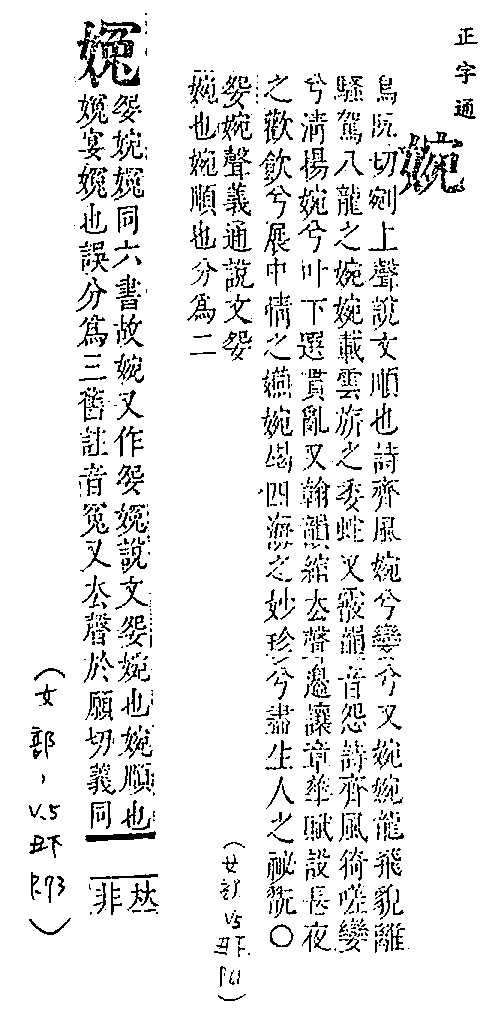 正字通
婉
烏阮切剜上聲說文順也詩齊風婉兮孌兮又婉婉龍飛貌離
騷駕八龍之婉婉載雲旂之委蛇又霰韻音怨詩齊風猗嗟孌
兮清揚婉兮叶下選貫亂又翰韻綰去聲邊讓章華賦設長夜
之歡飲兮展中情之嬿婉竭四海之妙珍兮盡生人之祕翫○
妴婉聲義通說文妴
婉也婉順也分爲二
(女部 V.5
丑下
P.61)
⿰女冤
妴婉⿰女冤同六書故婉又作妴⿰女冤說文妴婉也婉順也
⿰女冤宴⿰女冤也誤分爲三舊註音冤又去聲於願切義同
𠀤
非
(女部, V.5
丑下
P.93)